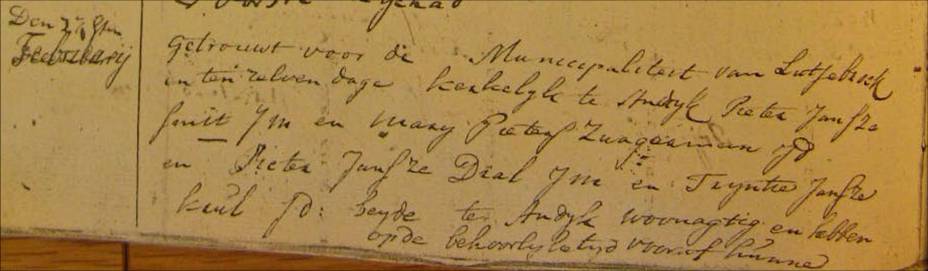 Den 7 Sten
Feebruarij
Getrouwt voor de Municipaliteit van Lutjebroek
en ten zelven dage kerkelyk te Andyk Pieter Jansze
Smit Jm en Mary Pieters Zwagerman Jd
en Pieter Jansze Dral Jm en Tryntie Jansze
Kuul Jd: beyde te Andyk woonagtig en hebben
op de behoorlyke tyd vooraf hunne